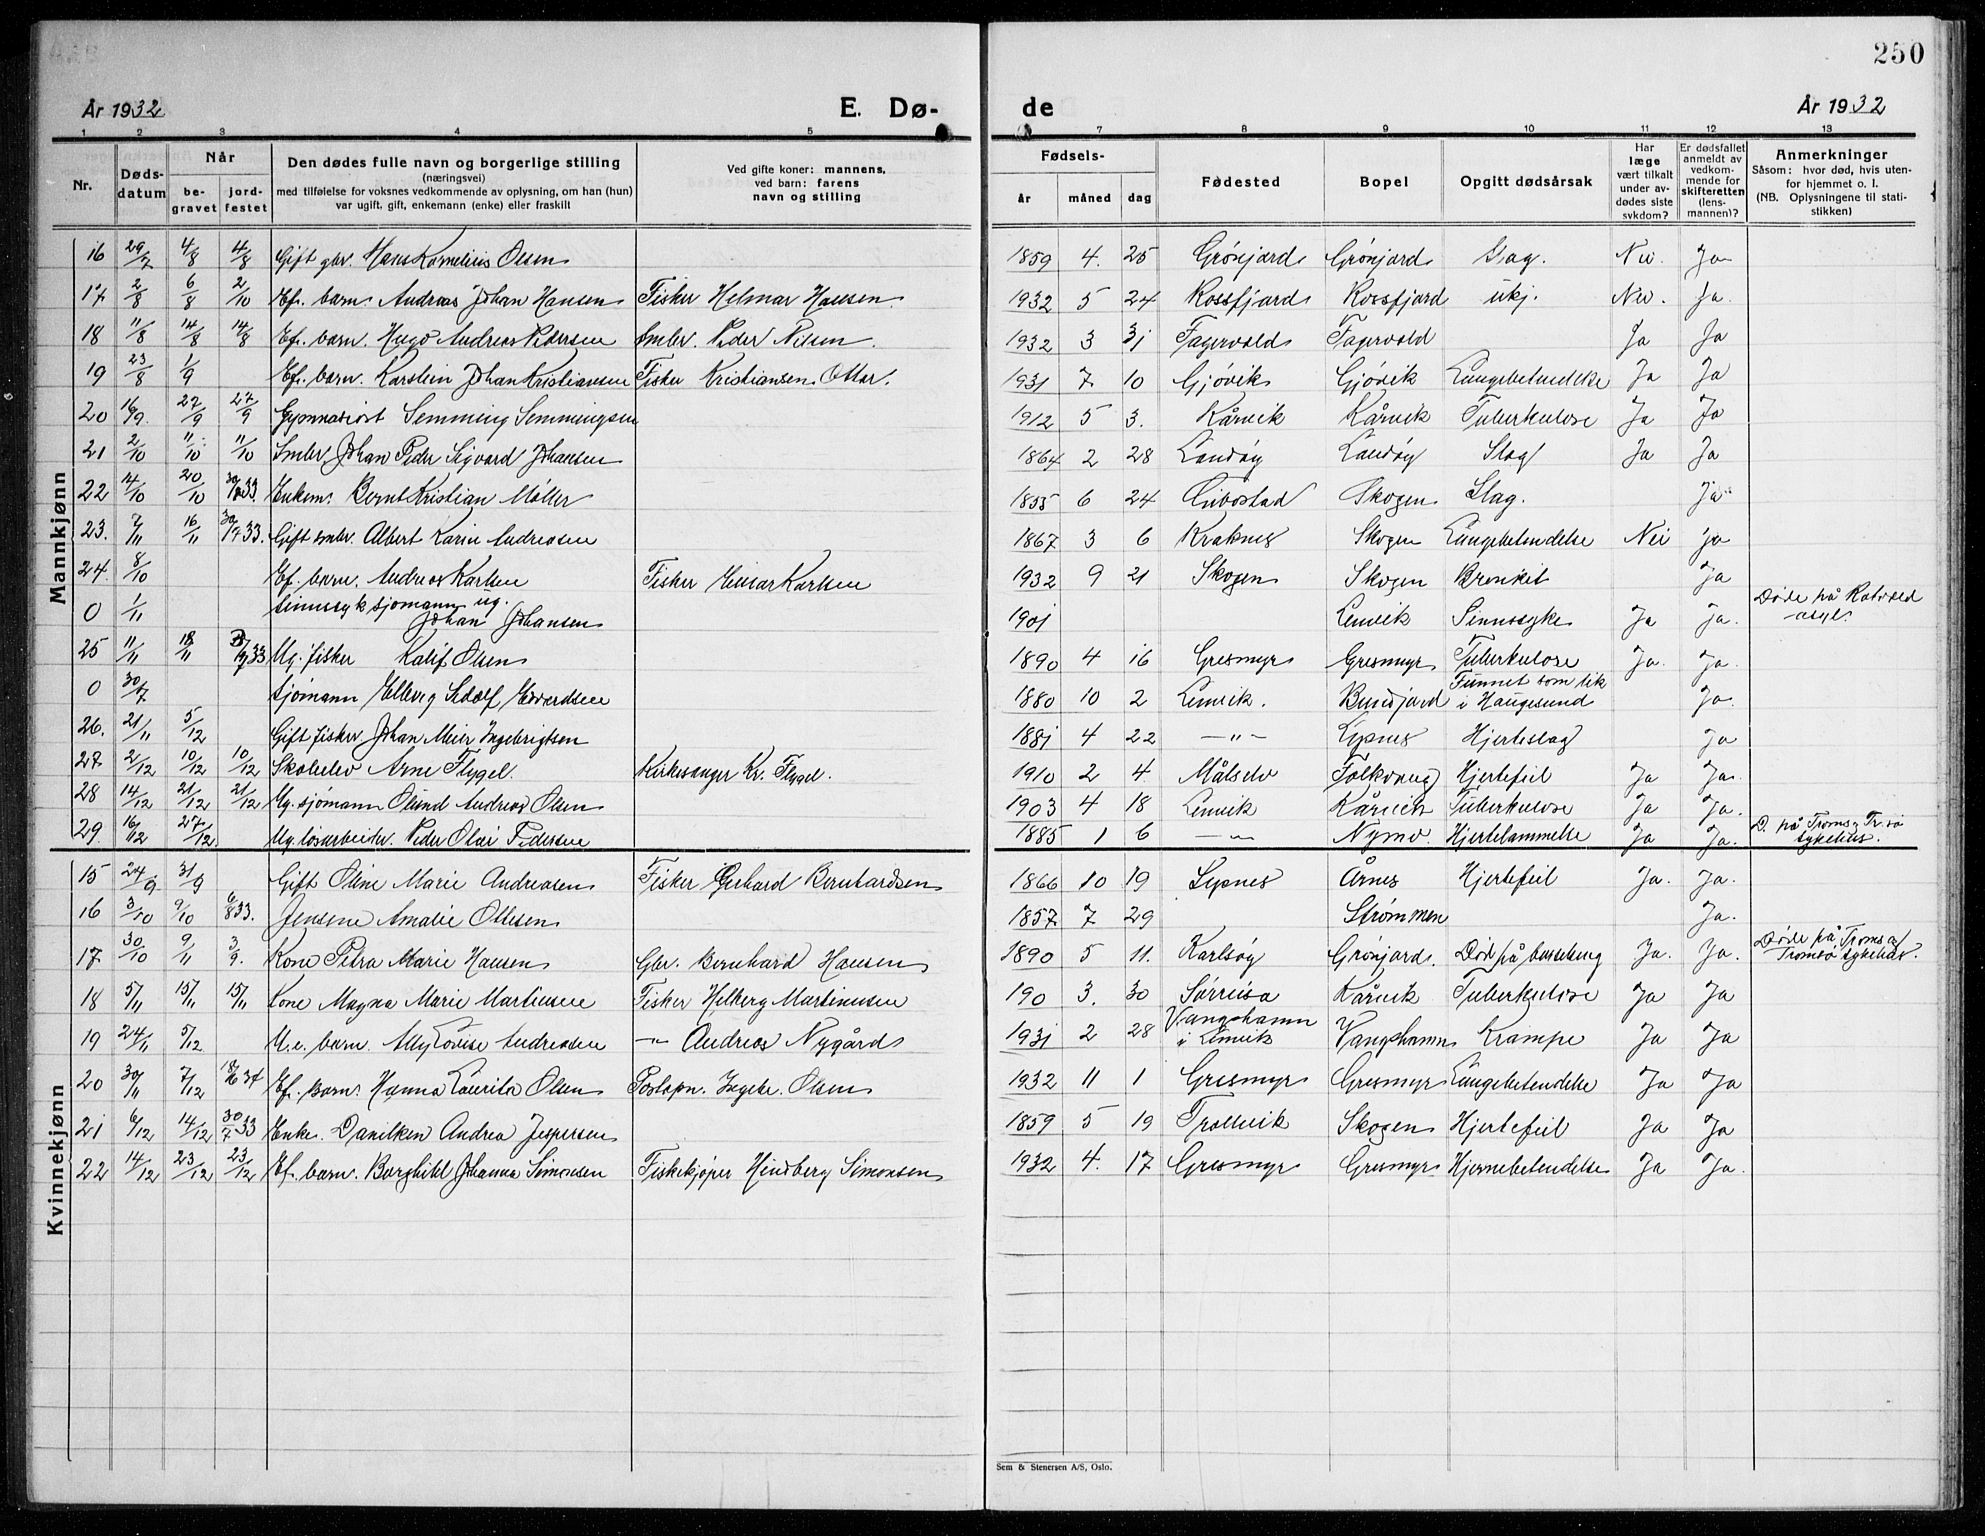 250
År 1932 E. Dø- de År 1932
1 2 3 4 5 7 8 9 10 11 12 13
Nr. Døds-datum Når be-gravet jord-festet Den dødes fulle navn og borgerlige stilling (næringsvei) med tilføielse for voksnes vedkommende av oplysning, om han (hun) var ugift, gift, enkemann (enke) eller fraskilt Ved gifte koner: mannens, ved barn: farens navn og stilling Fødsels- år måned dag Fødested Bopel Opgitt dødsårsak Har læge vært tilkalt under av-dødes siste sykdom? Er dødsfallet anmeldt av vedkom-mende for skifteretten (lens-mannen)? Anmerkninger Såsom: hvor død, hvis uten-for hjemmet o. l. (NB. Oplysningene til stati-stikken)
Mannkjønn
16 29/7 4/8 4/8 Gift gbr. Hans Kornelius Olsen 1859 4. 25 Grönfjord Grönfjord Slag. Nei. Ja
17 2/8 6/8 2/10 Ef. barn. Andreas Johan Hansen Fisker Helmar Hansen 1932 5 24 Rossfjord Rossfjord ukj. Nei. Ja.
18 11/8 14/8 14/8 Ef. barn. Hugo Andreas Pedersen Smbr. Peder Nilsen. 1932 3 31 Fagervold Fagervold Ja Ja
19 23/8 1/9 Ef. barn. Karstein Johan Kristiansen Fisker Kristiansen Ottar. 1931 7 10 Gjövik Gjövik Lungebetendelse Ja Ja
20 16/9. 27/9 27/9 Gymnasiast Semming Semmingsen 1912 5 3. Kårvik Kårvik Tuberkulose Ja Ja
21 2/10 11/10 11/10 Smbr. Johan Peder Sigvard Johansen 1864 2 28 Landöy Landöy Slag Ja Ja
22 14/10 20/10 33. Enkem. Bernt Kristian Möller 1855 6 24 Gibostad Skogen Slag. Ja
23. 7/11 16/11 33. Gift smbr. Albert Karin Andreasen 1867 3 6 Kraknes Skogen Lungebetendelse Nei Ja
24. 8/10 Ef. barn. Andreas Karlsen Fisker Einar Karlsen 1932 9 21 Skogen Skogen Bronkit Ja
0 1/11 Sinnssyk sjømann ug. Johan Johansen 1901 Lenvik Sinnssyke Ja Ja. Døde på Rotvold asyl.
25 11/11 18/11 33 Ug. fisker Kalif Olsen 1890 4 16 Gresmyr Gresmyr Tuberkulose Ja. Ja.
0 30/7 Sjömann Ellevig Adolf Edvardsen 1880 10 2 Lenvik. Bunkfjord Funnet som lik i Haugesund Ja.
26. 21/11 5/12 Gift fisker Johan Meier Ingebrigtsen 1881 4 22 —"— Lysnes Hjerteslag Ja
27 2/12 10/12 10/12 Skoleelev Arne Flygel. Kirkesanger Kr. Flygel. 1910 2 4. Målselv Folkvang Hjertefeil Ja Ja.
28 14/12 21/12 21/12 Ug. sjømann Ölund Andreas Olsen 1903 4 18 Lenvik Kårvik Tuberkulose Ja Ja.
29. 16/12 27/12 Ug. løsarbeider. Peder Olai Pedersen 1885 1 6 —"— Nymo. Hjertelammelse Ja Ja. D. på Troms og Tr.sö sykehus.
Kvinnekjønn
15 24/9 31/9 Gift Oline Marie Andreasen Fisker Gerhard Bernhardsen 1866 10 19 Lysnes Årnes Hjertefeil Ja. Ja.
16 3/10 9/10 6/8 33. Jensine Amalie Ottesen 1857 7 29 Strømmen Ja.
17 30/10 9/11 3/9. Kone Petra Marie Hansen Gbr. Bernhard Hansen 1890 5 11. Karlsöy Grönfjord. Död på barselseng Ja. Ja. Døde på Troms og Tromsö sykehus.
18 5/11 15/11 15/11 Kone Magna Marie Martinsen Fisker Helberg Martinussen 190 3. 30 Sörreisa Kårvik Tuberkulose Ja Ja
19 24/11 5/12 U.e. barn. Ally Lovise Andreasen —"— Andreas Nygård 1931 2 28 Vangshamn i Lenvik Vangshamn Krampe Ja Ja
20 30/11 7/12 34 Ef. barn. Hanna Laurita Olsen Postopn. Ingebr. Olsen 1932 11 1 Gresmyr Gresmyr Lungebetendelse Ja Ja
21 6/12 14/12 30/7 33 Enke. Danilken Andrea Jespersen 1859 5 19 Trollvik Skogen Hjertefeil Ja Ja
22 14/12 23/12 23/12 Ef. barn. Borghild Johanna Simonsen Fiskekjøper Hindberg Simonsen 1932 4. 17 Gresmyr Gresmyr Hjernebetendelse Ja Ja.
Sem & Stenersen A/S, Oslo.